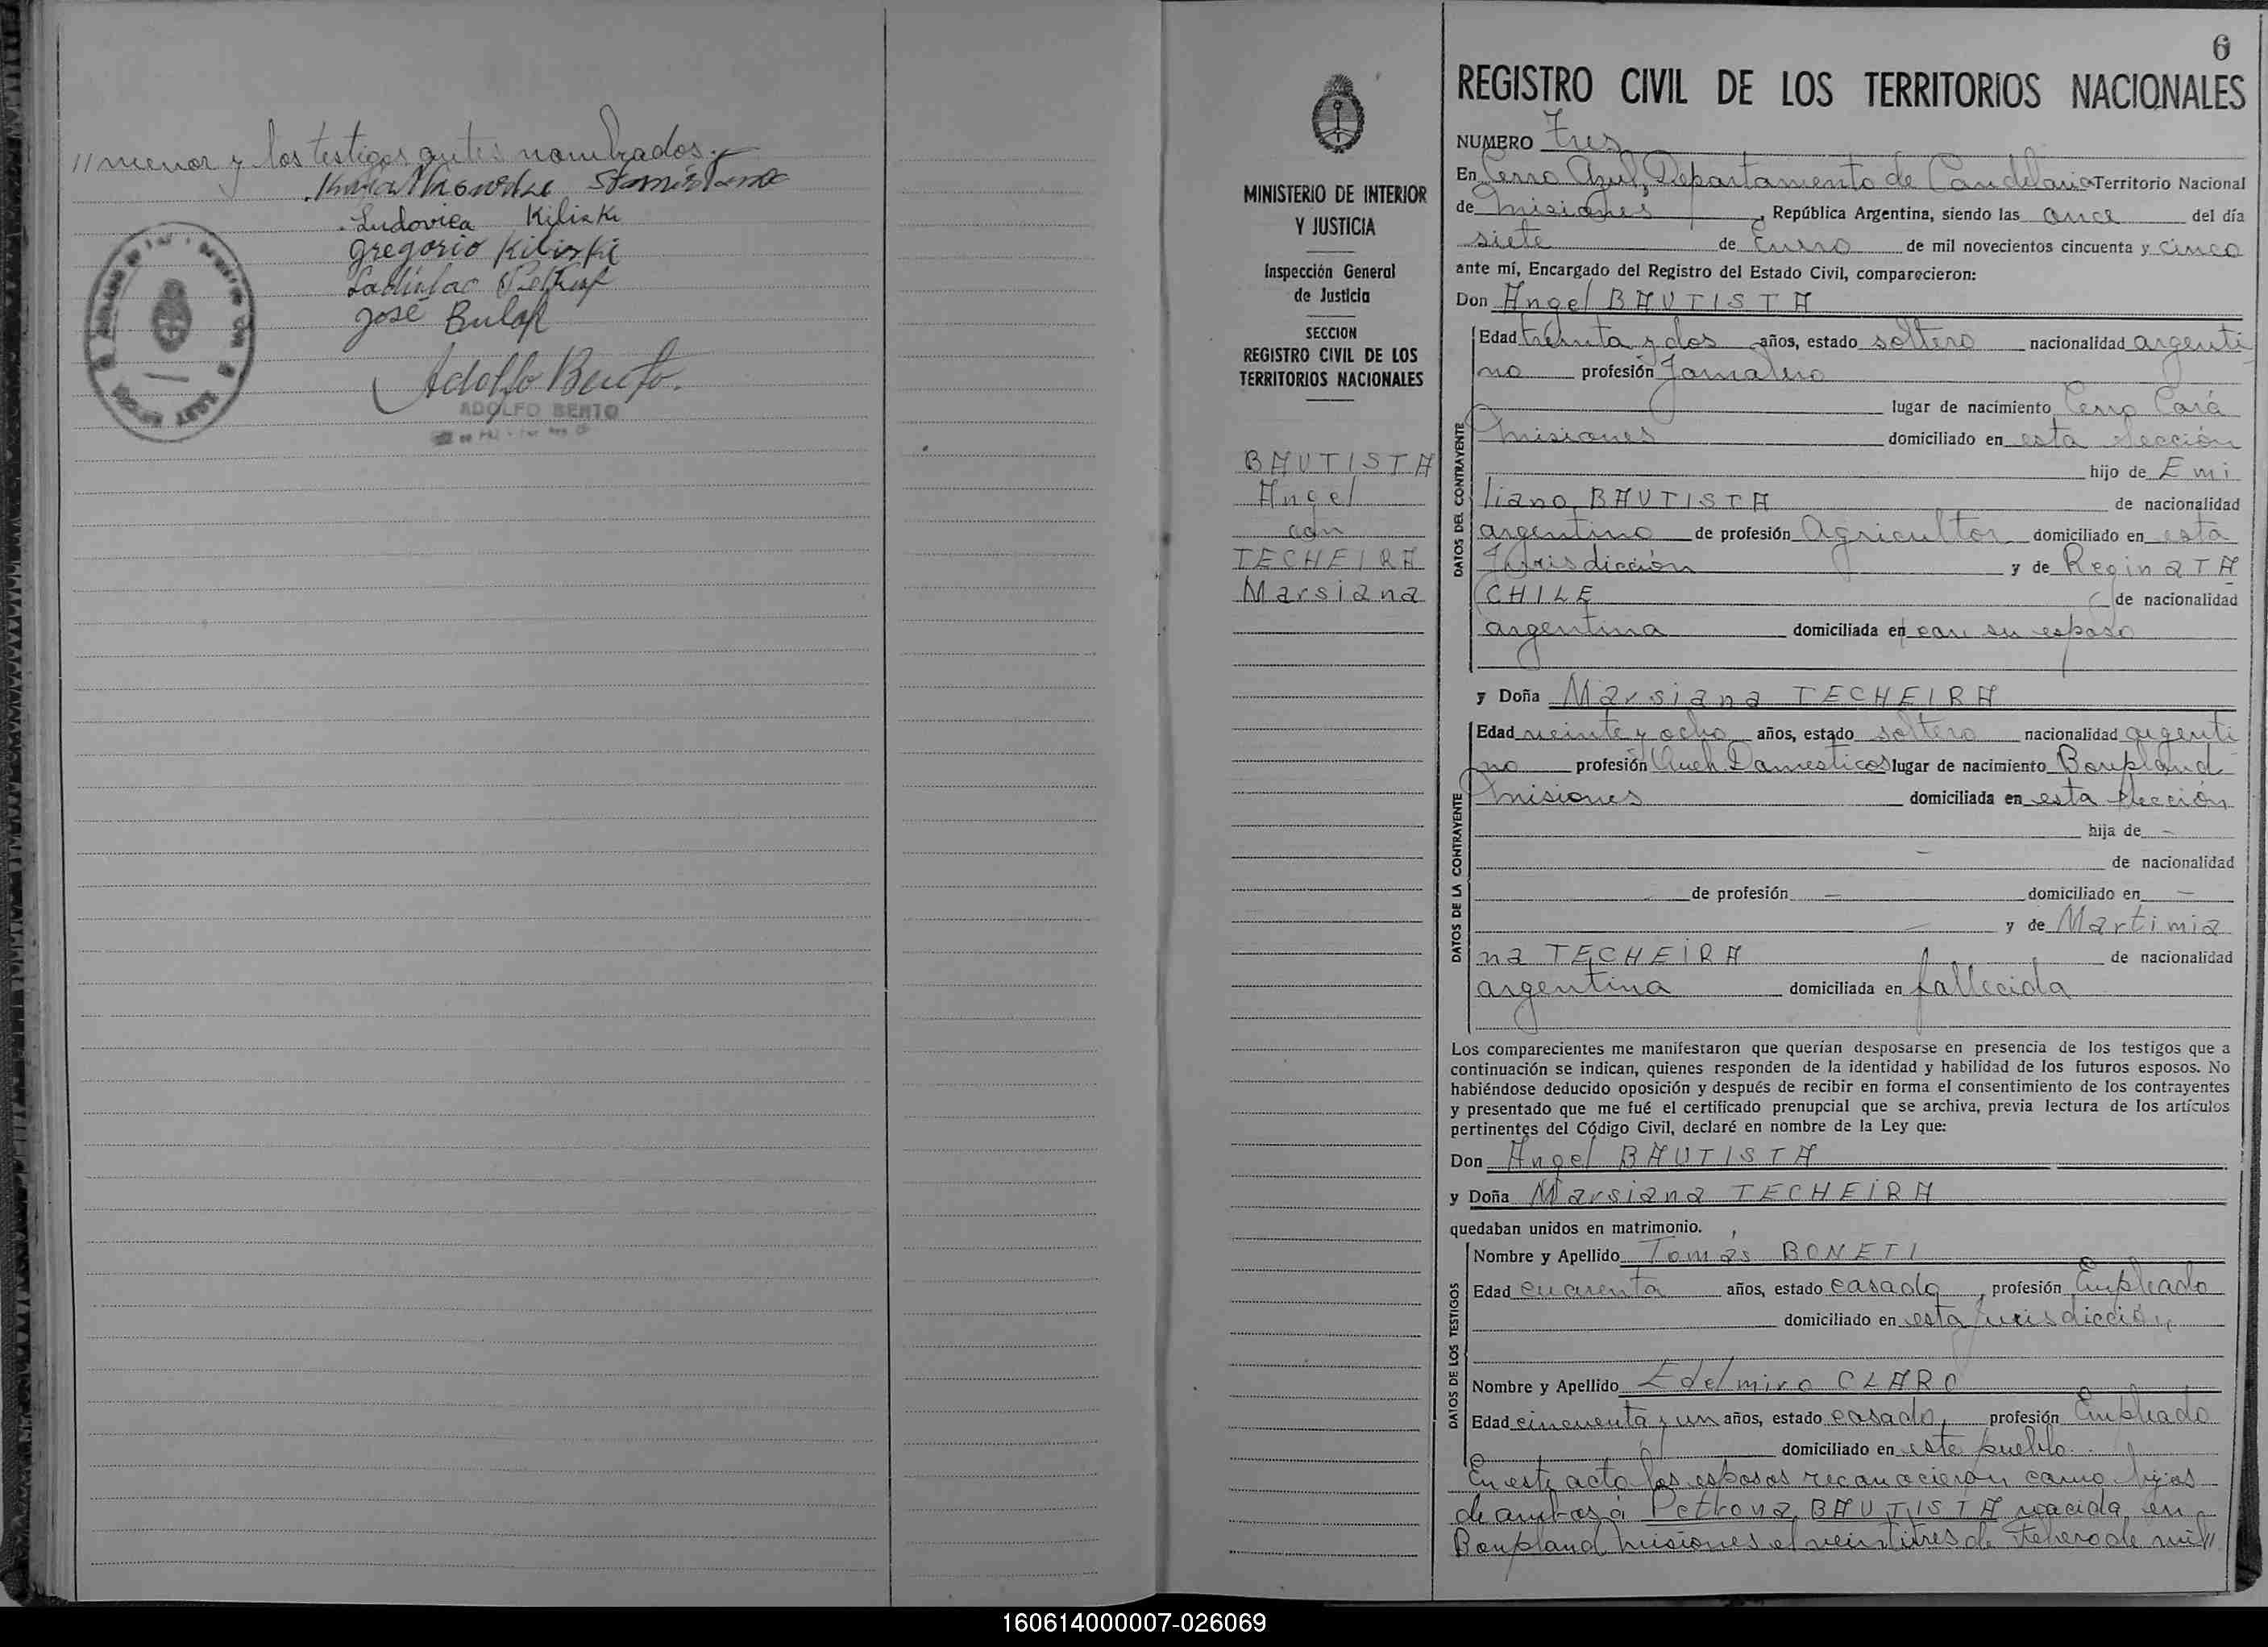 // menor y los testigos antes nombrados.-
Ludovica Kiliski
Gregorio Kiliski
José Bulak
Adolfo Berto.
ADOLFO BERTO
6
REGISTRO CIVIL DE LOS TERRITORIOS NACIONALES
MINISTERIO DE INTERIOR
Y JUSTICIA
Inspección General
de Justicia
SECCION
REGISTRO CIVIL DE LOS
TERRITORIOS NACIONALES
BAUTISTA
Angel
con
TECHEIRA
Marsiana
NUMERO Tres
En Cerro Azul, Departamento de Candelaria Territorio Nacional
de Misiones, República Argentina, siendo las once del día
siete de Enero de mil novecientos cincuenta y cinco
ante mí, Encargado del Registro del Estado Civil, comparecieron:
Don Angel BAUTISTA
DATOS DEL CONTRAYENTE
Edad treinta y dos años, estado soltero nacionalidad argenti
no profesión Jornalero
lugar de nacimiento Cerro Corá
Misiones domiciliado en esta Sección
hijo de Emi
liano BAUTISTA de nacionalidad
argentino de profesión Agricultor domiciliado en esta
Jurisdicción y de Regina TA
CHILE de nacionalidad
argentina domiciliada en con su esposo
y Doña Marsiana TECHEIRA
DATOS DE LA CONTRAYENTE
Edad veinte y ocho años, estado soltera nacionalidad argenti
na profesión Queh. Domesticos lugar de nacimiento Bonpland
Misiones domiciliada en esta Sección
hija de -
de nacionalidad
de profesión — domiciliado en —
y de Martimia
na TECHEIRA de nacionalidad
argentina domiciliada en fallecida
Los comparecientes me manifestaron que querían desposarse en presencia de los testigos que a
continuación se indican, quienes responden de la identidad y habilidad de los futuros esposos. No
habiéndose deducido oposición y después de recibir en forma el consentimiento de los contrayentes
y presentado que me fué el certificado prenupcial que se archiva, previa lectura de los artículos
pertinentes del Código Civil, declaré en nombre de la Ley que:
Don Angel BAUTISTA
y Doña Marsiana TECHEIRA
quedaban unidos en matrimonio.
DATOS DE LOS TESTIGOS
Nombre y Apellido Tomás BONETI
Edad cuarenta años, estado casado, profesión Empleado
domiciliado en esta jurisdicción
Nombre y Apellido Edelmiro CLARO
Edad cincuenta y un años, estado casado, profesión Empleado
domiciliado en este pueblo.
En este acto los esposos reconocieron como hijos
de ambos a Petrona BAUTISTA nacida en
Bonpland Misiones el veintitres de Febrero de mil //
160614000007-026069